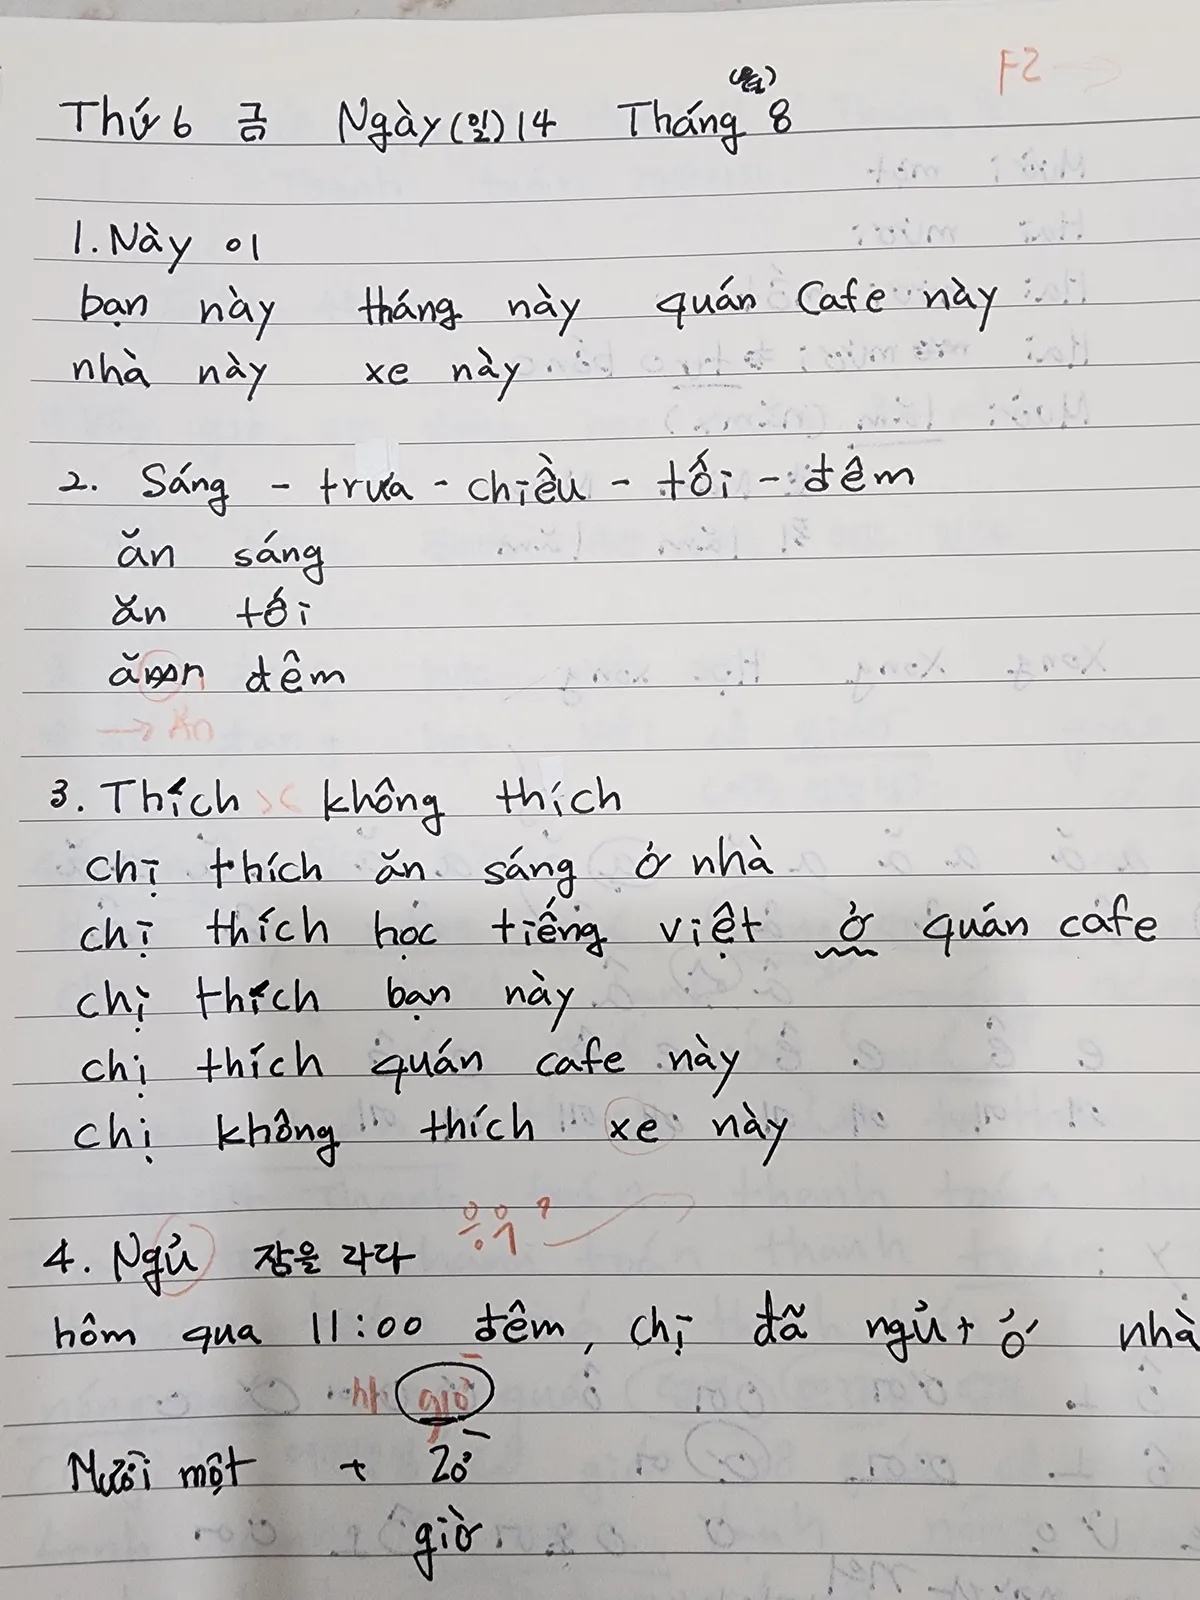 F2 →
(월)
Thứ 6 금 Ngày (일) 14 Tháng 8
1. Này 이
bạn này tháng này quán Cafe này
nhà này xe này
2. Sáng - trưa - chiều - tối - đêm
ăn sáng
ăn tối
ăn đêm
→ ăn
3. Thích >< không thích
chị thích ăn sáng ở nhà
chị thích học tiếng việt ở quán cafe
chị thích bạn này
chị thích quán cafe này
chị không thích xe này
4. Ngủ 잠을 자다
hôm qua 11:00 đêm, chị đã ngủ + ở nhà
시 giờ
Mười một + Zờ
giờ